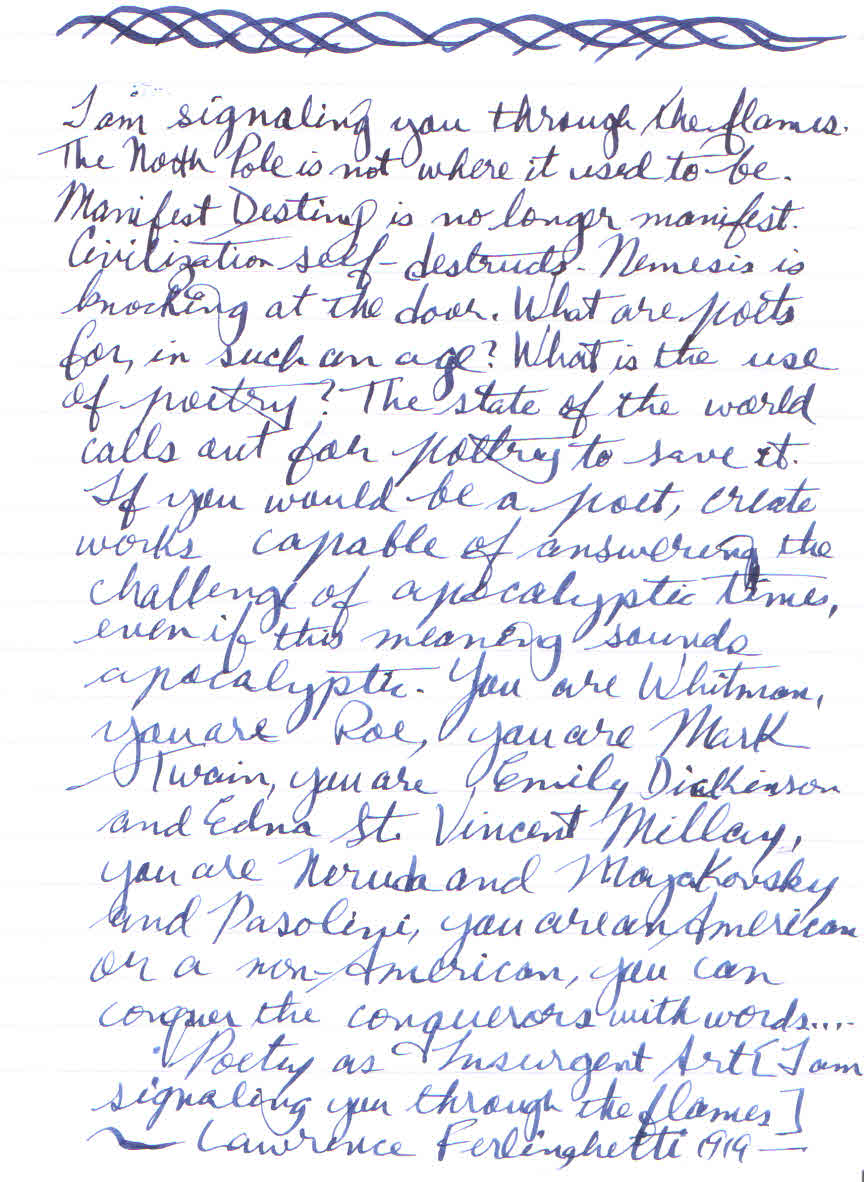 I am signaling you through the flames.
The North Pole is not where it used to be.
Manifest Destiny is no longer manifest.
Civilization self-destructs. Nemesis is
knocking at the door. What are poets
for, in such an age? What is the use
of poetry? The state of the world
calls out for poetry to save it.
If you would be a poet, create
works capable of answering the
challenge of apocalyptic times,
even if this meaning sounds
apocalyptic. You are Whitman,
you are Poe, you are Mark
Twain, you are Emily Dickinson
and Edna St. Vincent Millay,
you are Neruda and Mayakovsky
and Pasolini, you are an American
or a non-American, you can
conquer the conquerors with words....
Poetry as Insurgent Art [I am
signaling you through the flames]
~ Lawrence Ferlinghetti 1919 —